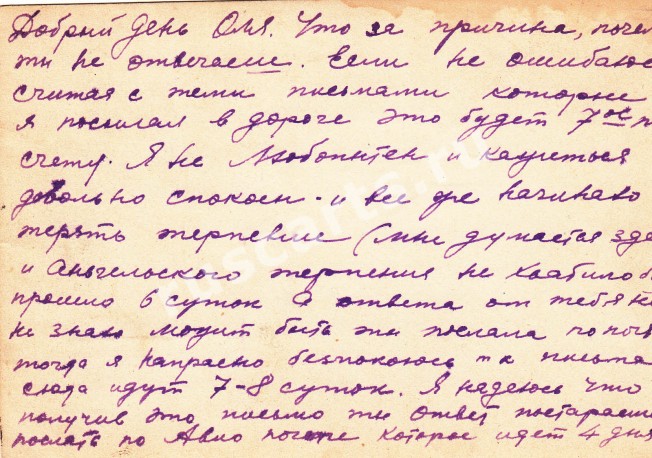 Добрый день Оля. Что за причина, поче
ты не отвечаеш. Если не ошибаюс
считая с теми письмами которые
я посылал в дороге это будет 7ое п
счету. Я не Любопытен и кажеться
довольно спокоен. и все же начинаю
терять терпение (мне думается зде
и Аньгельского терпения не хватило б
прошло 6 суток а ответа от тебя н
не знаю может быть ты послала по поч
тогда я напрасно безпокоюсь т к письма
сюда идут 7-8 суток. Я надеюсь что
получив это письмо ты ответ постараеш
послать по Авио почте которое идет 4 дня
ruscarts.ru